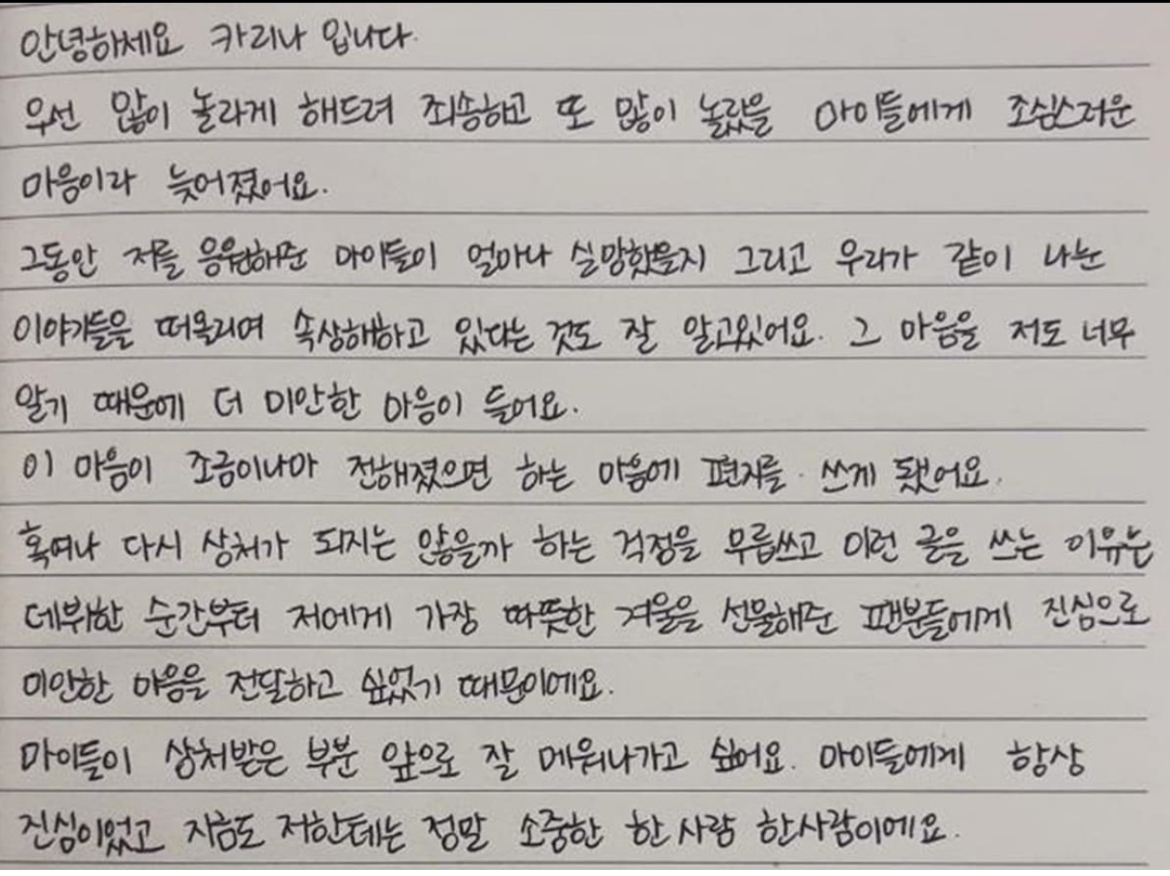 안녕하세요 카리나 입니다.
우선 많이 놀라게 해드려 죄송하고 또 많이 놀랐을 마이들에게 조심스러운
마음이라 늦어졌어요.
그동안 저를 응원해준 마이들이 얼마나 실망했을지 그리고 우리가 같이 나눈
이야기들을 떠올리며 속상해하고 있다는 것도 잘 알고있어요. 그 마음을 저도 너무
알기 때문에 더 미안한 마음이 들어요.
이 마음이 조금이나마 전해졌으면 하는 마음에 편지를 쓰게 됐어요.
혹여나 다시 상처가 되지는 않을까 하는 걱정을 무릅쓰고 이런 글을 쓰는 이유는
데뷔한 순간부터 저에게 가장 따뜻한 겨울을 선물해준 팬분들에게 진심으로
미안한 마음을 전달하고 싶었기 때문이에요.
마이들이 상처받은 부분 앞으로 잘 메워나가고 싶어요. 마이들에게 항상
진심이었고 지금도 저한테는 정말 소중한 한 사람 한사람이에요.